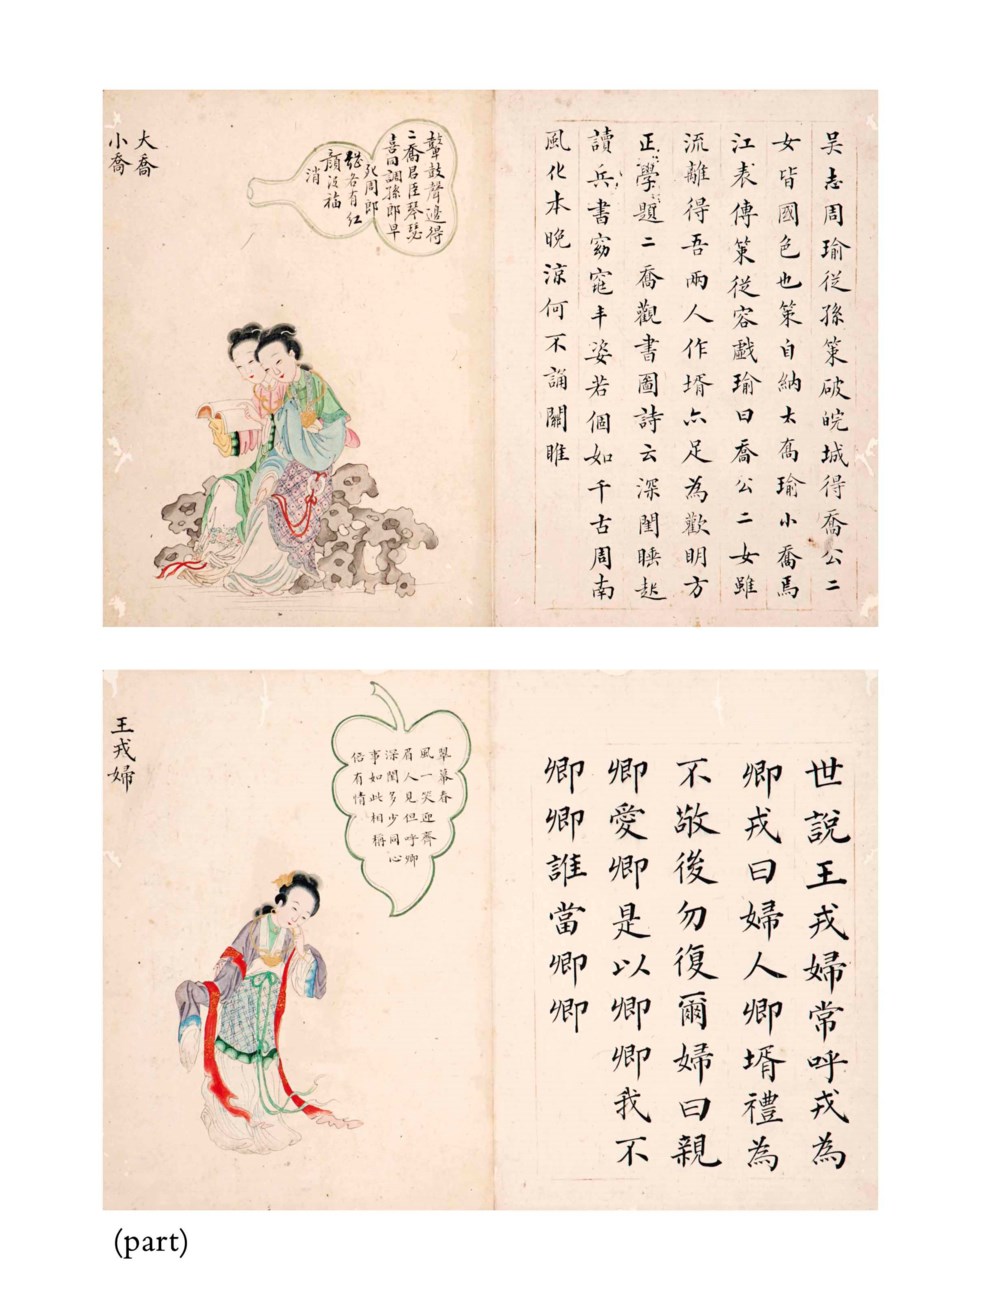 吳志周瑜從孫策破皖城得喬公二
女皆國色也策自納大喬瑜小喬焉
江表傳策從容戲瑜曰喬公二女雖
流離得吾兩人作壻亦足為歡明方
正學題二喬觀書圖詩云深閨睡起
讀兵書窈窕丰姿若個如千古周南
風化本晚涼何不誦關雎
鼙鼓聲邊得
二喬君臣琴瑟
喜同調孫郎早
死周郎
繼各有紅
顏没福
消
大喬
小喬
世說王戎婦常呼戎為
卿戎曰婦人卿壻禮為
不敬後勿復爾婦曰親
卿愛卿是以卿卿我不
卿卿誰當卿卿
翠幕春
風一笑迎齊
眉人見但呼卿
深閨多少同心
事如此相稱
有情
王戎婦
(part)